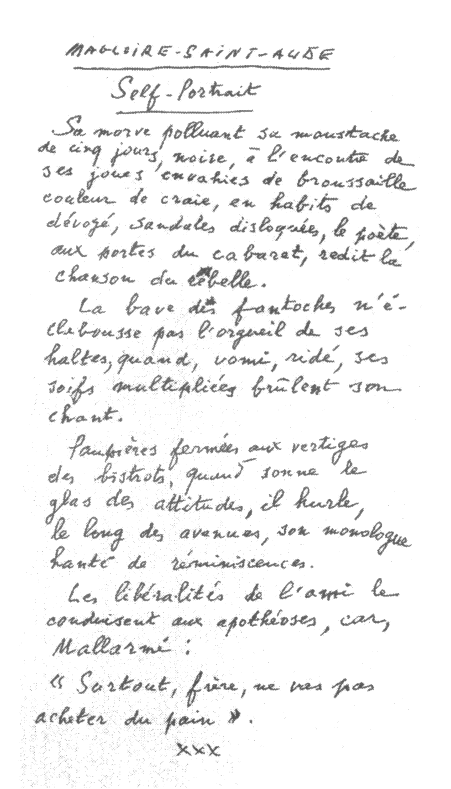 MAGLOIRE-SAINT-AUDE
Self-Portrait
Sa morve polluant sa moustache
de cinq jours, noise, à l'encontre de
ses joues envahies de broussaille
couleur de craie, en habits de
dévoyé, sandales disloquées, le poète,
aux portes du cabaret, redit la
chanson du rebelle.
La bave des fantoches n'é-
clabousse pas l'orgueil de ses
haltes, quand, vomi, ridé, ses
soifs multipliées brûlent son
chant.
Paupières fermées aux vertiges
des bistrots, quand sonne le
glas des attitudes, il hurle,
le long des avenues, son monologue
hanté de réminiscences.
Les libéralités de l'ami le
conduisent aux apothéoses, car,
Mallarmé :
« Surtout, frère, ne vas pas
acheter du pain ».
xxx